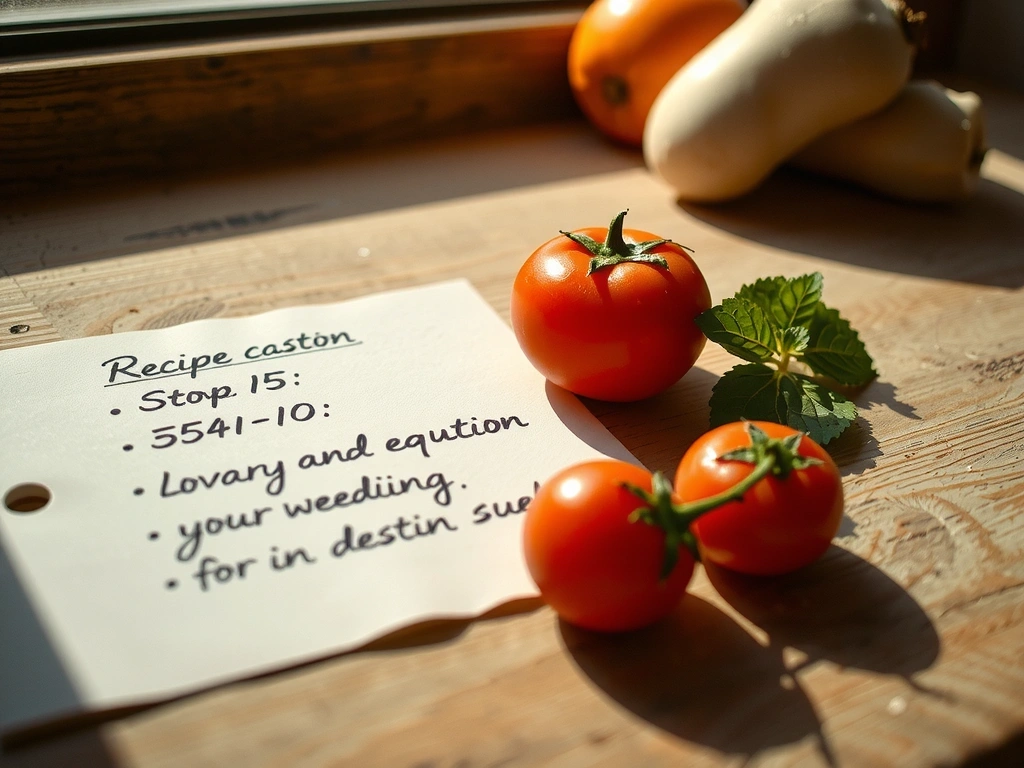 Recipe caston
• Stop 15:
• 5541-10:
• Lovary and eqution
• your weediing.
• for in destin